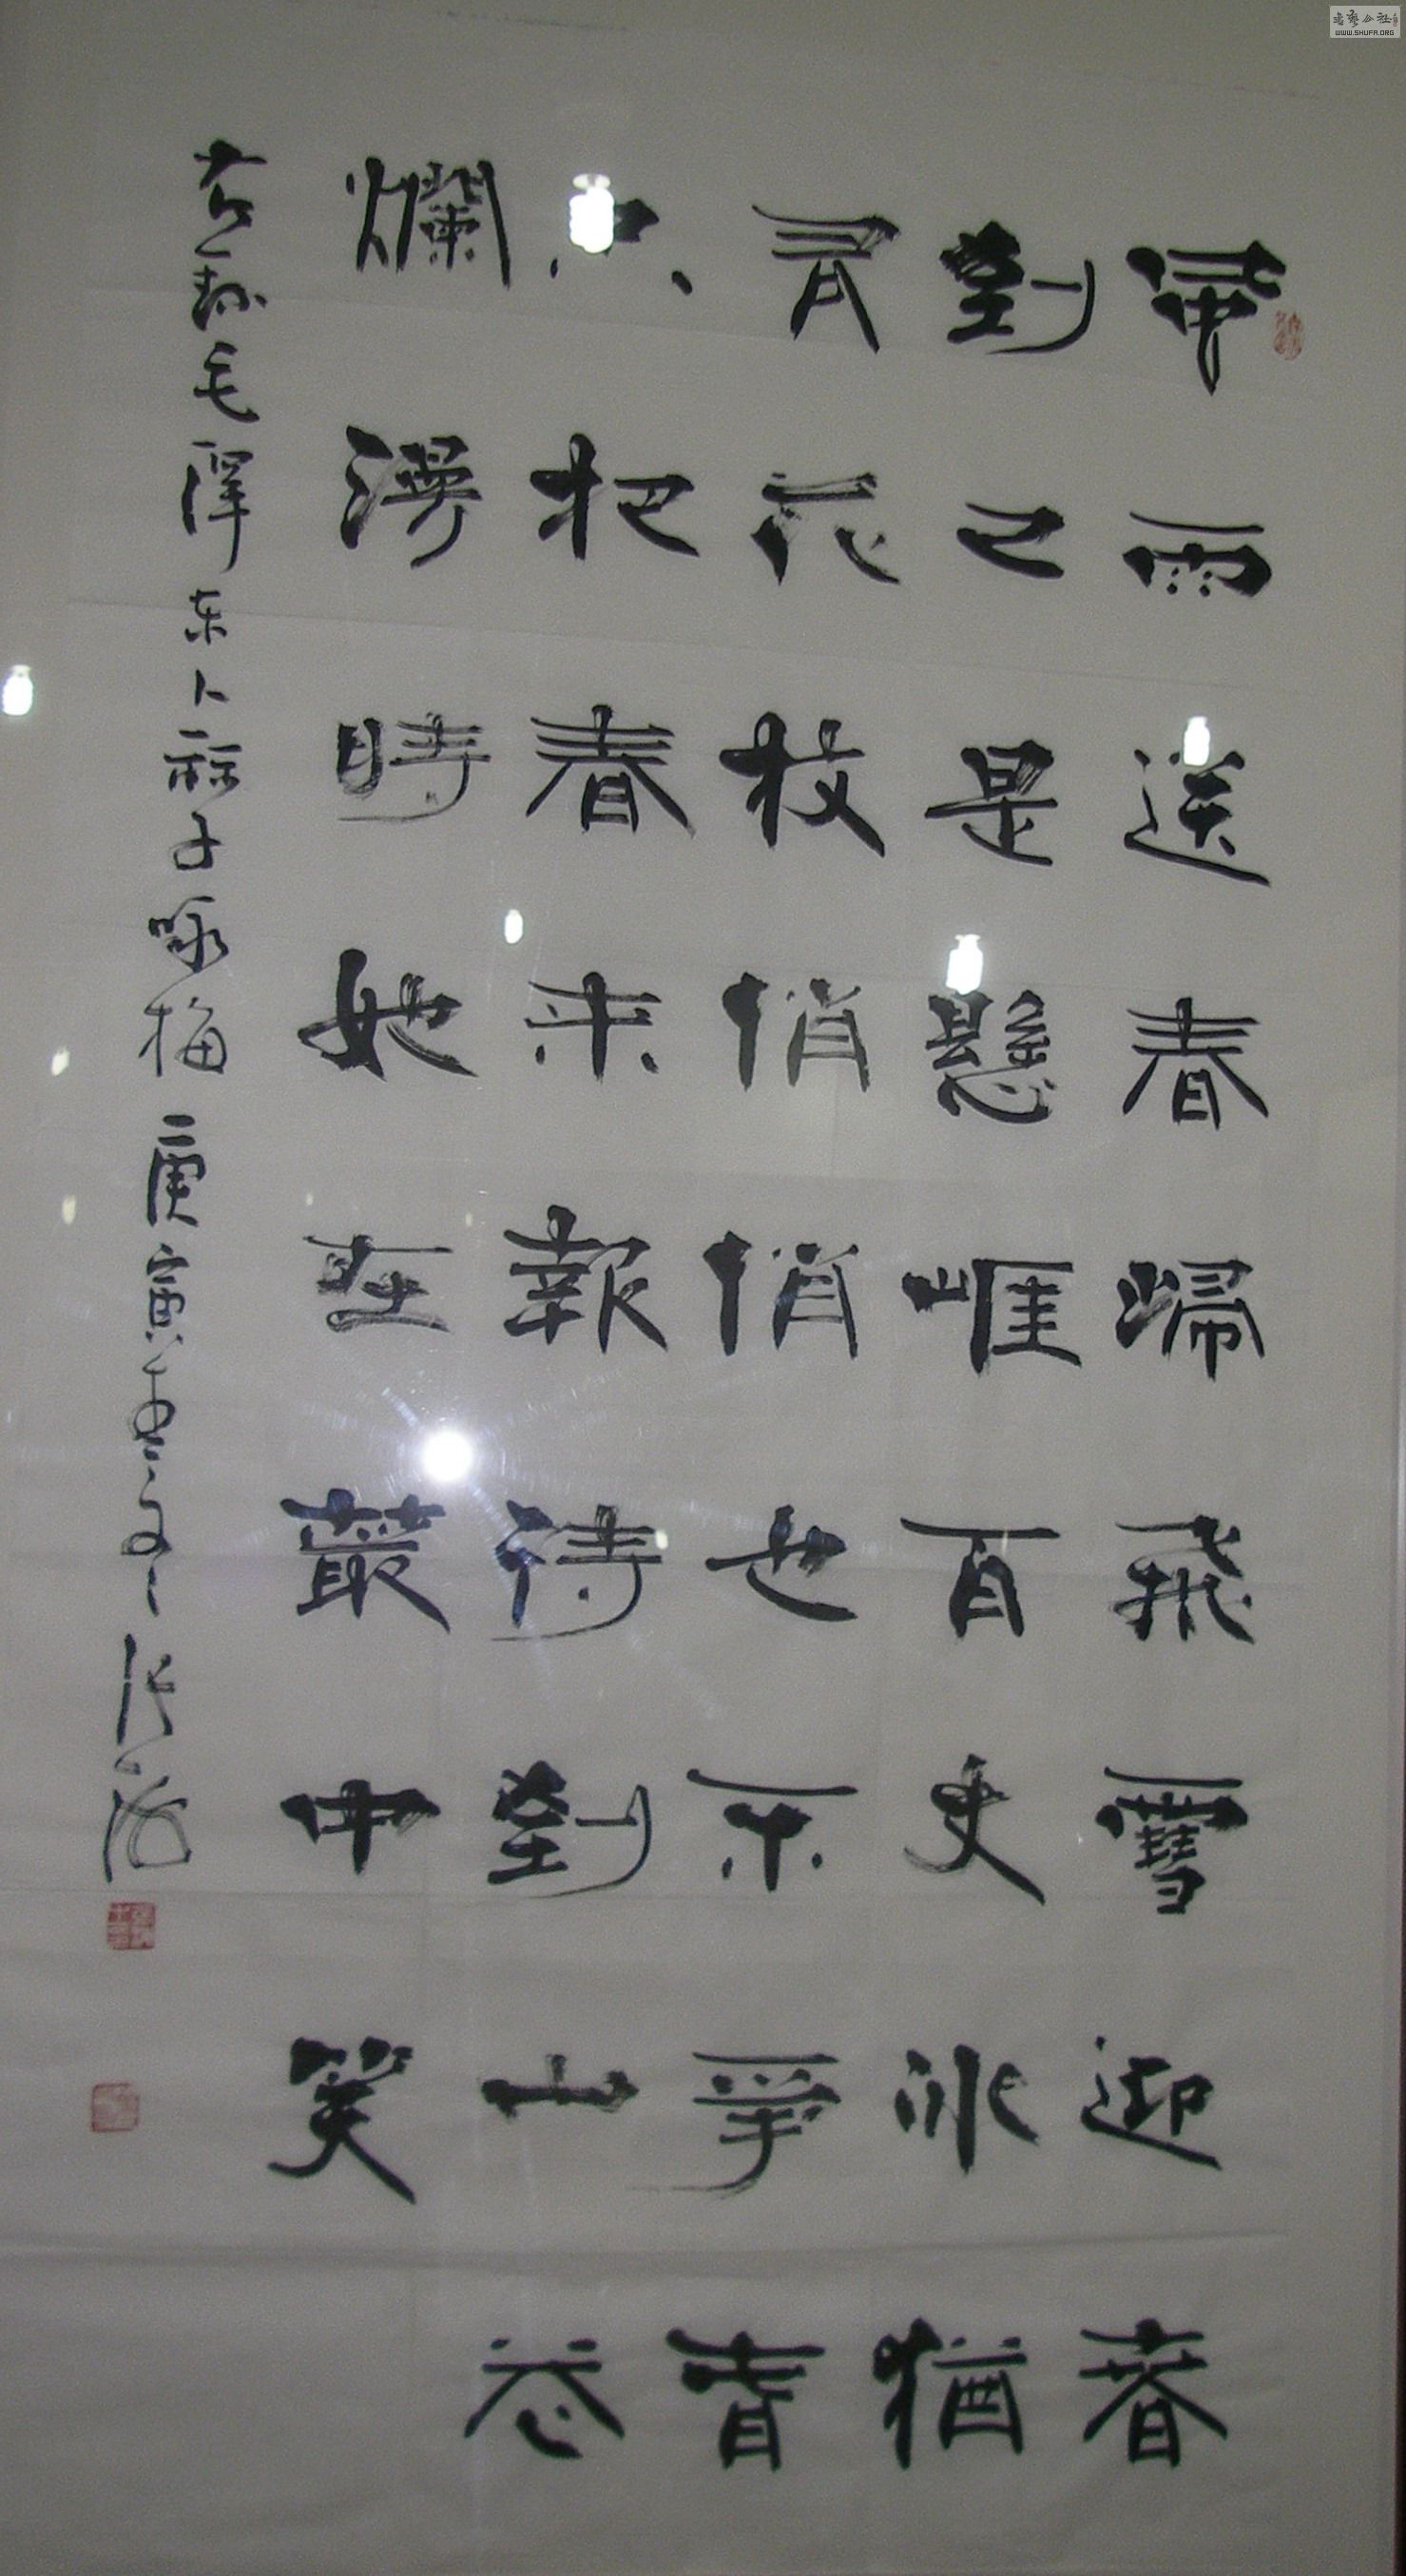 風雨送春歸飛雪迎春
到已是懸崖百丈冰猶
有花枝俏俏也不爭春
只把春來報待到山花
爛漫時她在叢中笑
右錄毛澤东卜祘子咏梅 庚寅 张海
书艺公社
WWW.SHUFA.ORG